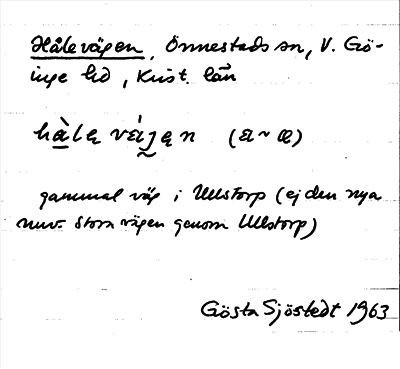 Hålevägen, Önnestads sn, V. Gö-
inge hd, Krist. län
gammal väg i Ullstorp (ej den nya
nuv. stora vägen genom Ullstorp)
Gösta Sjöstedt 1963